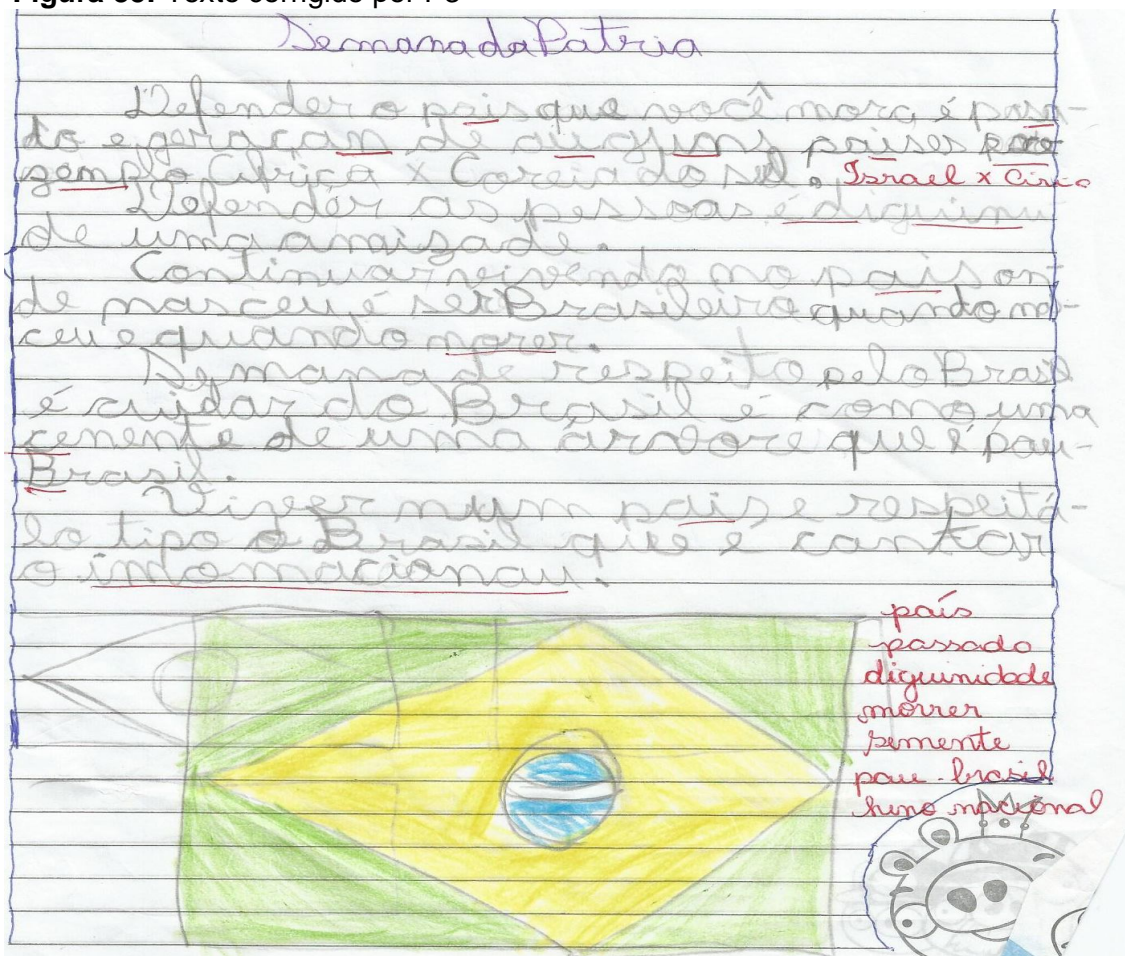 Figura 35: Texto corrigido por P3
Semana da Patria
Defender o pais que você mora é pasa-
do e geraçam de auguns paises
zemplo Cibriça x Coreia do sul. Israel x Ciria
Defender as pessoas é
de uma amaizade.
Continuar vivendo no pais on-
de nasceu é ser Brasileiro quando na-
ceu e quando morer.
Semana de respeito pelo Brasil
é cuidar do Brasil é como uma
cemente de uma arvore que é pau-
Brasil.
Viver num pais e respeitá-
lo tipo o Brasil que e cantar
o inomacionau!
país
passado
diguinidade
morrer
semente
pau-brasil
hino nacional